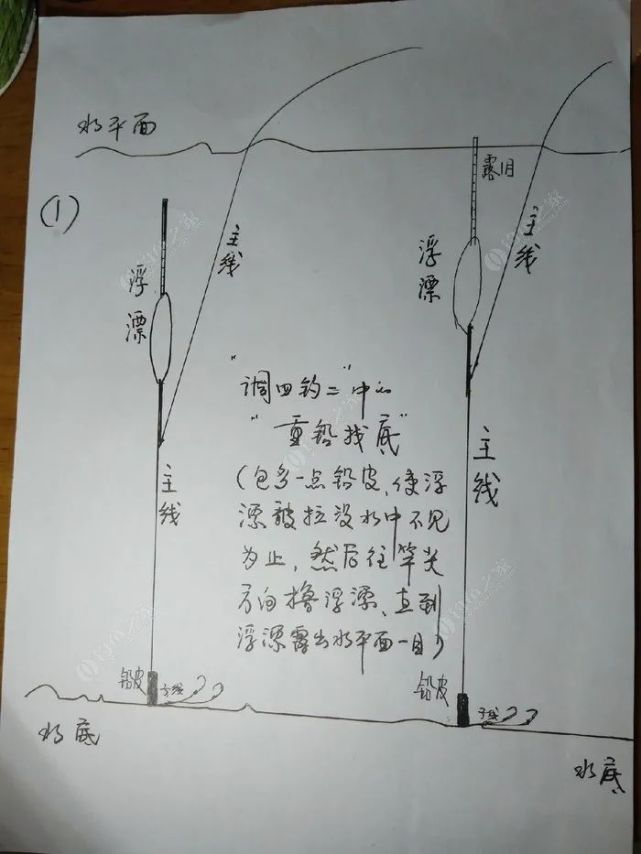 水平面
(1)
露1目
浮漂
主线
浮漂
主线
"调四钓二"中的
"重铅找底"
(包多一点铅皮,使浮
漂被拉没水中不见
为止,然后往竿尖
方向撸浮漂,直到
浮漂露出水平面一目)
主线
主线
铅皮
子线
铅皮
子线
水底
水底